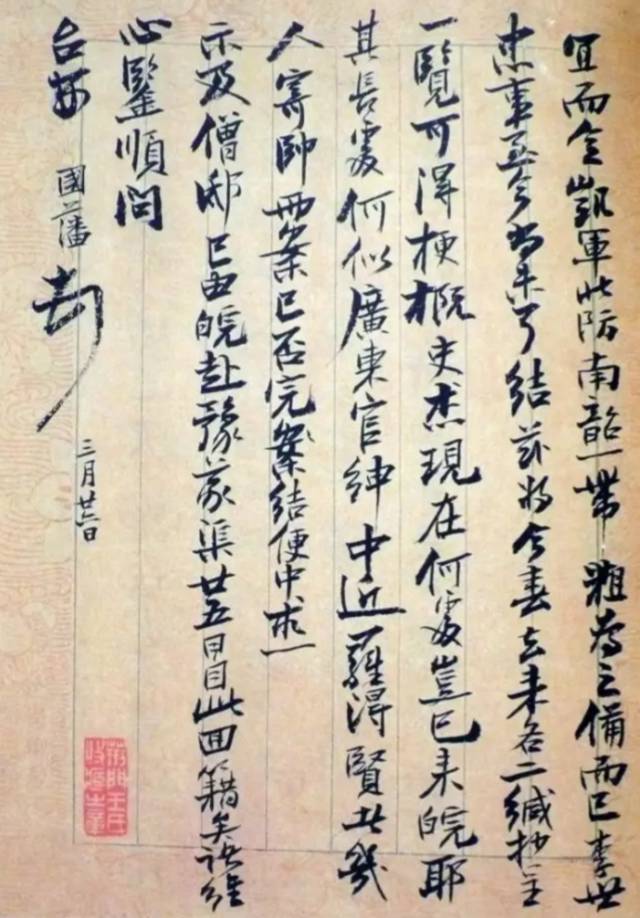 宜而令凱軍此防南韶一帶粗為之備而已李世
忠事至今尚未了結茲將今春去來各二緘抄呈
一覽可得梗概史杰現在何處豈已來皖耶
其長處何似廣東官紳中近羅得賢者幾
人寄帥西案已否完案結便中求
示及僧邸已由皖赴豫義渠廿五日自此回籍矣諸維
心鑒順問
台安 國藩 頓
三月廿六日